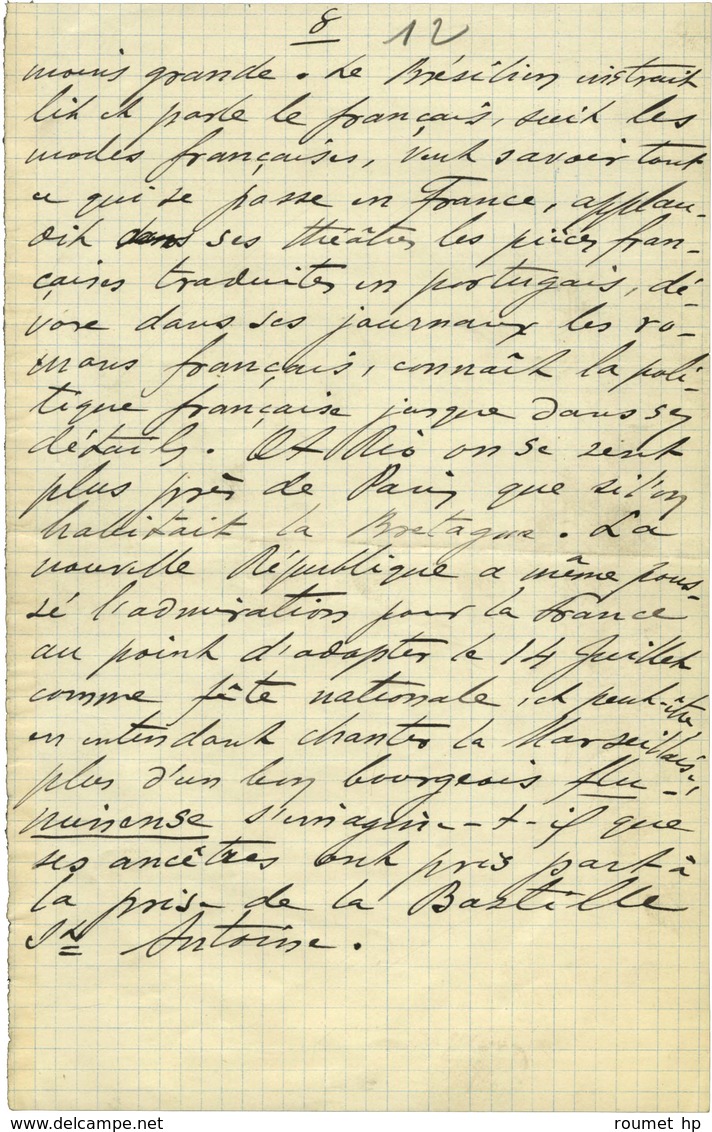 8 12
moins grande. Le Brésilien instruit
lit et parle le français, suit les
modes françaises, veut savoir tout
ce qui se passe en France, applau-
dit dans ses théâtres les pièces fran-
çaises traduites en portugais, dé-
vore dans ses journaux les ro-
mans français, connaît la poli-
tique française jusque dans ses
détails. Et Rio on se sent
plus près de Paris que si l'on
habitait la Bretagne. La
nouvelle République a même pous-
sé l'admiration pour la France
au point d'adopter le 14 Juillet
comme fête nationale, et peut-être
en entendant chanter la Marseillaise,
plus d'un bon bourgeois flu-
minense s'imagine-t-il que
ses ancêtres ont pris part à
la prise de la Bastille
St Antoine.
roumet hp
www.delcampe.net